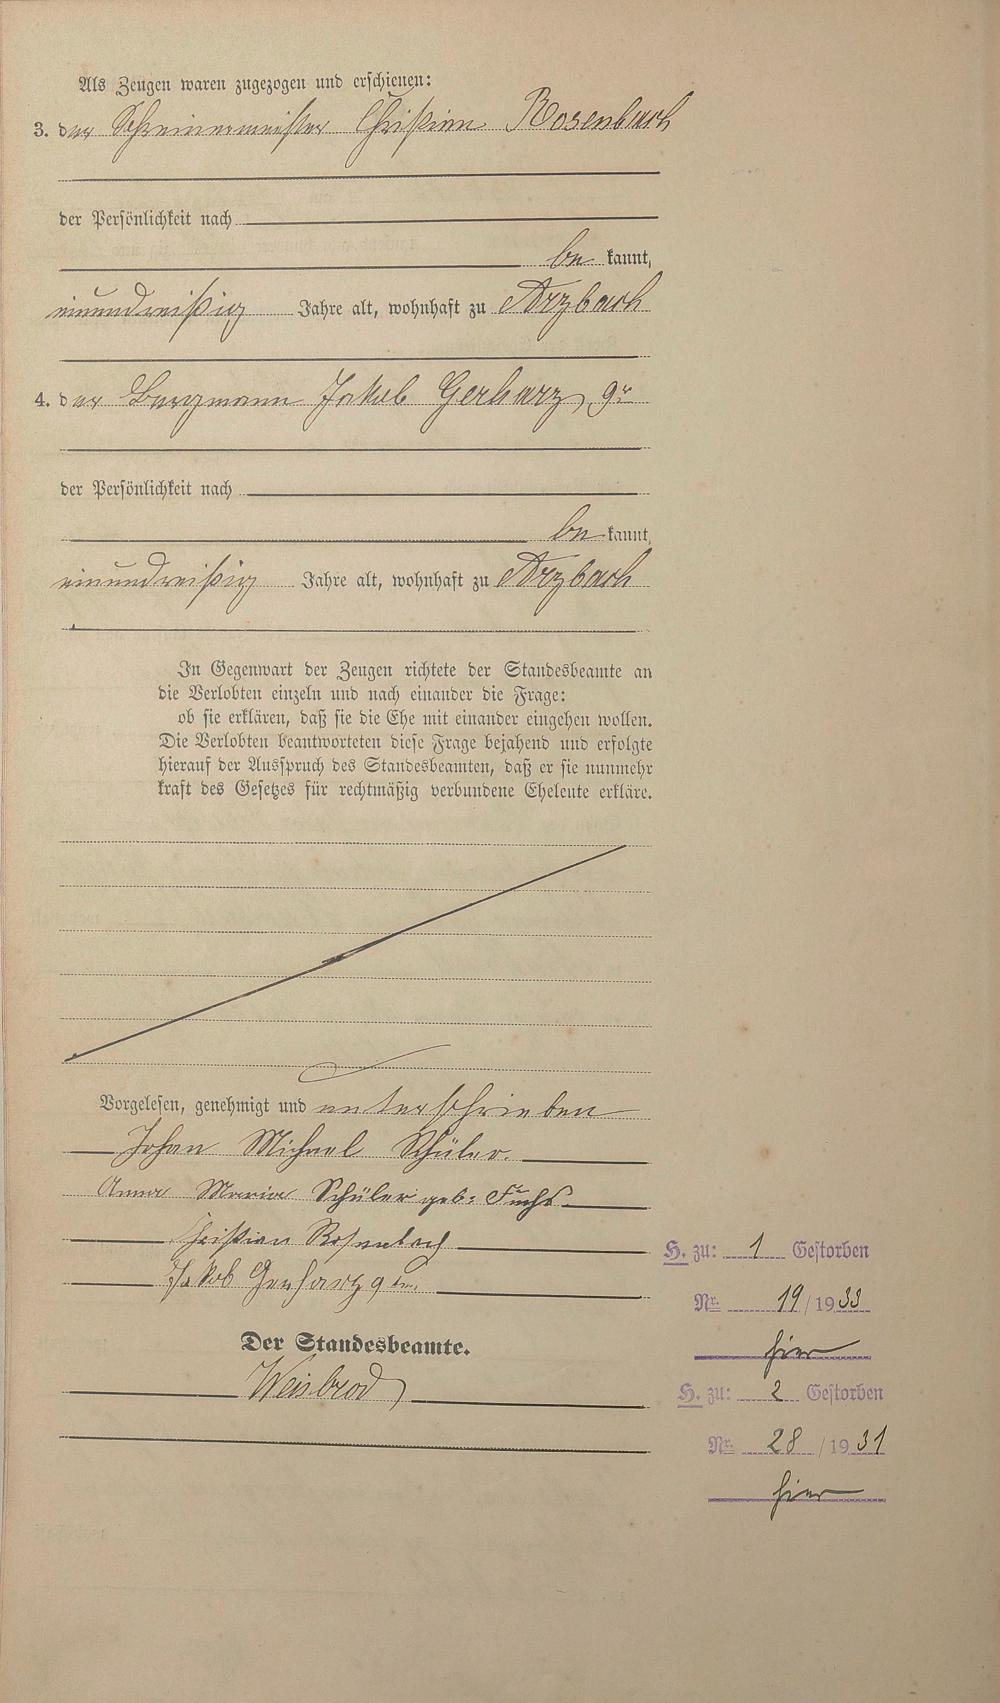 Als Zeugen waren zugezogen und erschienen:
3. der Schreinermeister Christian Rosenbach
der Persönlichkeit nach
be kannt,
einunddreißig Jahre alt, wohnhaft zu Arzbach
4. der Bergmann Jakob Gerharz, 9r
der Persönlichkeit nach
be kannt,
einunddreißig Jahre alt, wohnhaft zu Arzbach
In Gegenwart der Zeugen richtete der Standesbeamte an
die Verlobten einzeln und nach einander die Frage:
ob sie erklären, daß sie die Ehe mit einander eingehen wollen.
Die Verlobten beantworteten diese Frage bejahend und erfolgte
hierauf der Ausspruch des Standesbeamten, daß er sie nunmehr
kraft des Gesetzes für rechtmäßig verbundene Eheleute erkläre.
Vorgelesen, genehmigt und unterschrieben
Johan Michael Schüler.
Anna Maria Schüler geb: Fuchs.
Christian Rosenbach
Jakob Gerharz 9ter.
Der Standesbeamte.
Weisbrod
H. zu: 1 Gestorben
Nr. 19/1933
hier
H. zu: 2 Gestorben
Nr. 28/1931
hier